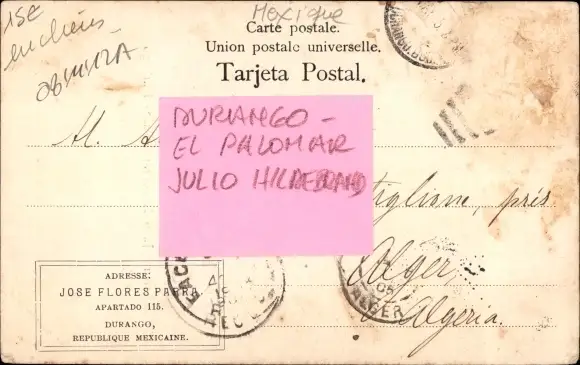 15€
enchères
Mexique
Carte postale.
Union postale universelle.
Tarjeta Postal.
Al.
DURANGO -
EL PALOMAR
JULIO HILDEBRAND
près
Alger
Algeria.
ALGER
ADRESSE:
JOSE FLORES PARRA
APARTADO 115.
DURANGO,
REPUBLIQUE MEXICAINE.